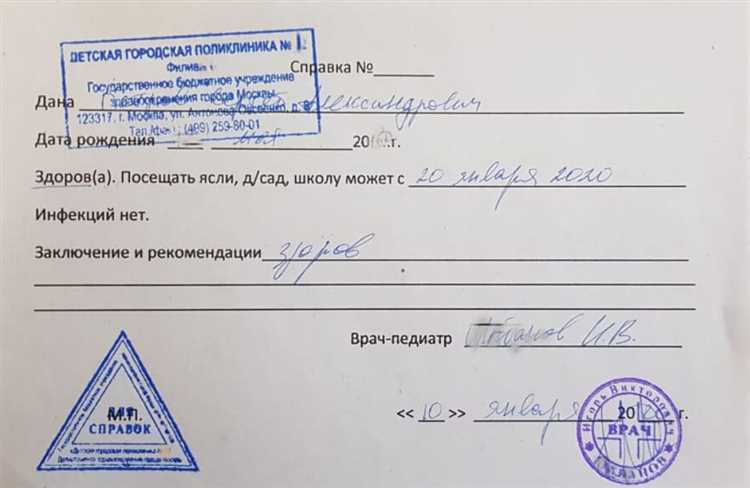 ДЕТСКАЯ ГОРОДСКАЯ ПОЛИКЛИНИКА №
Филиал
Государственное бюджетное учреждение
здравоохранения города Москвы
123317, г. Москва, ул. Антонова-Овсеенко, д.
Тел./факс: (499) 259-60-01
Справка №
Дана Александрович
Дата рождения мая 20 г.
Здоров(а). Посещать ясли, д/сад, школу может с 20 января 2020
Инфекций нет.
Заключение и рекомендации здоров
Врач-педиатр И.В.
М.П.
ДЛЯ
СПРАВОК
<< 10 >> января 20 г.
Игорь Викторович
ВРАЧ